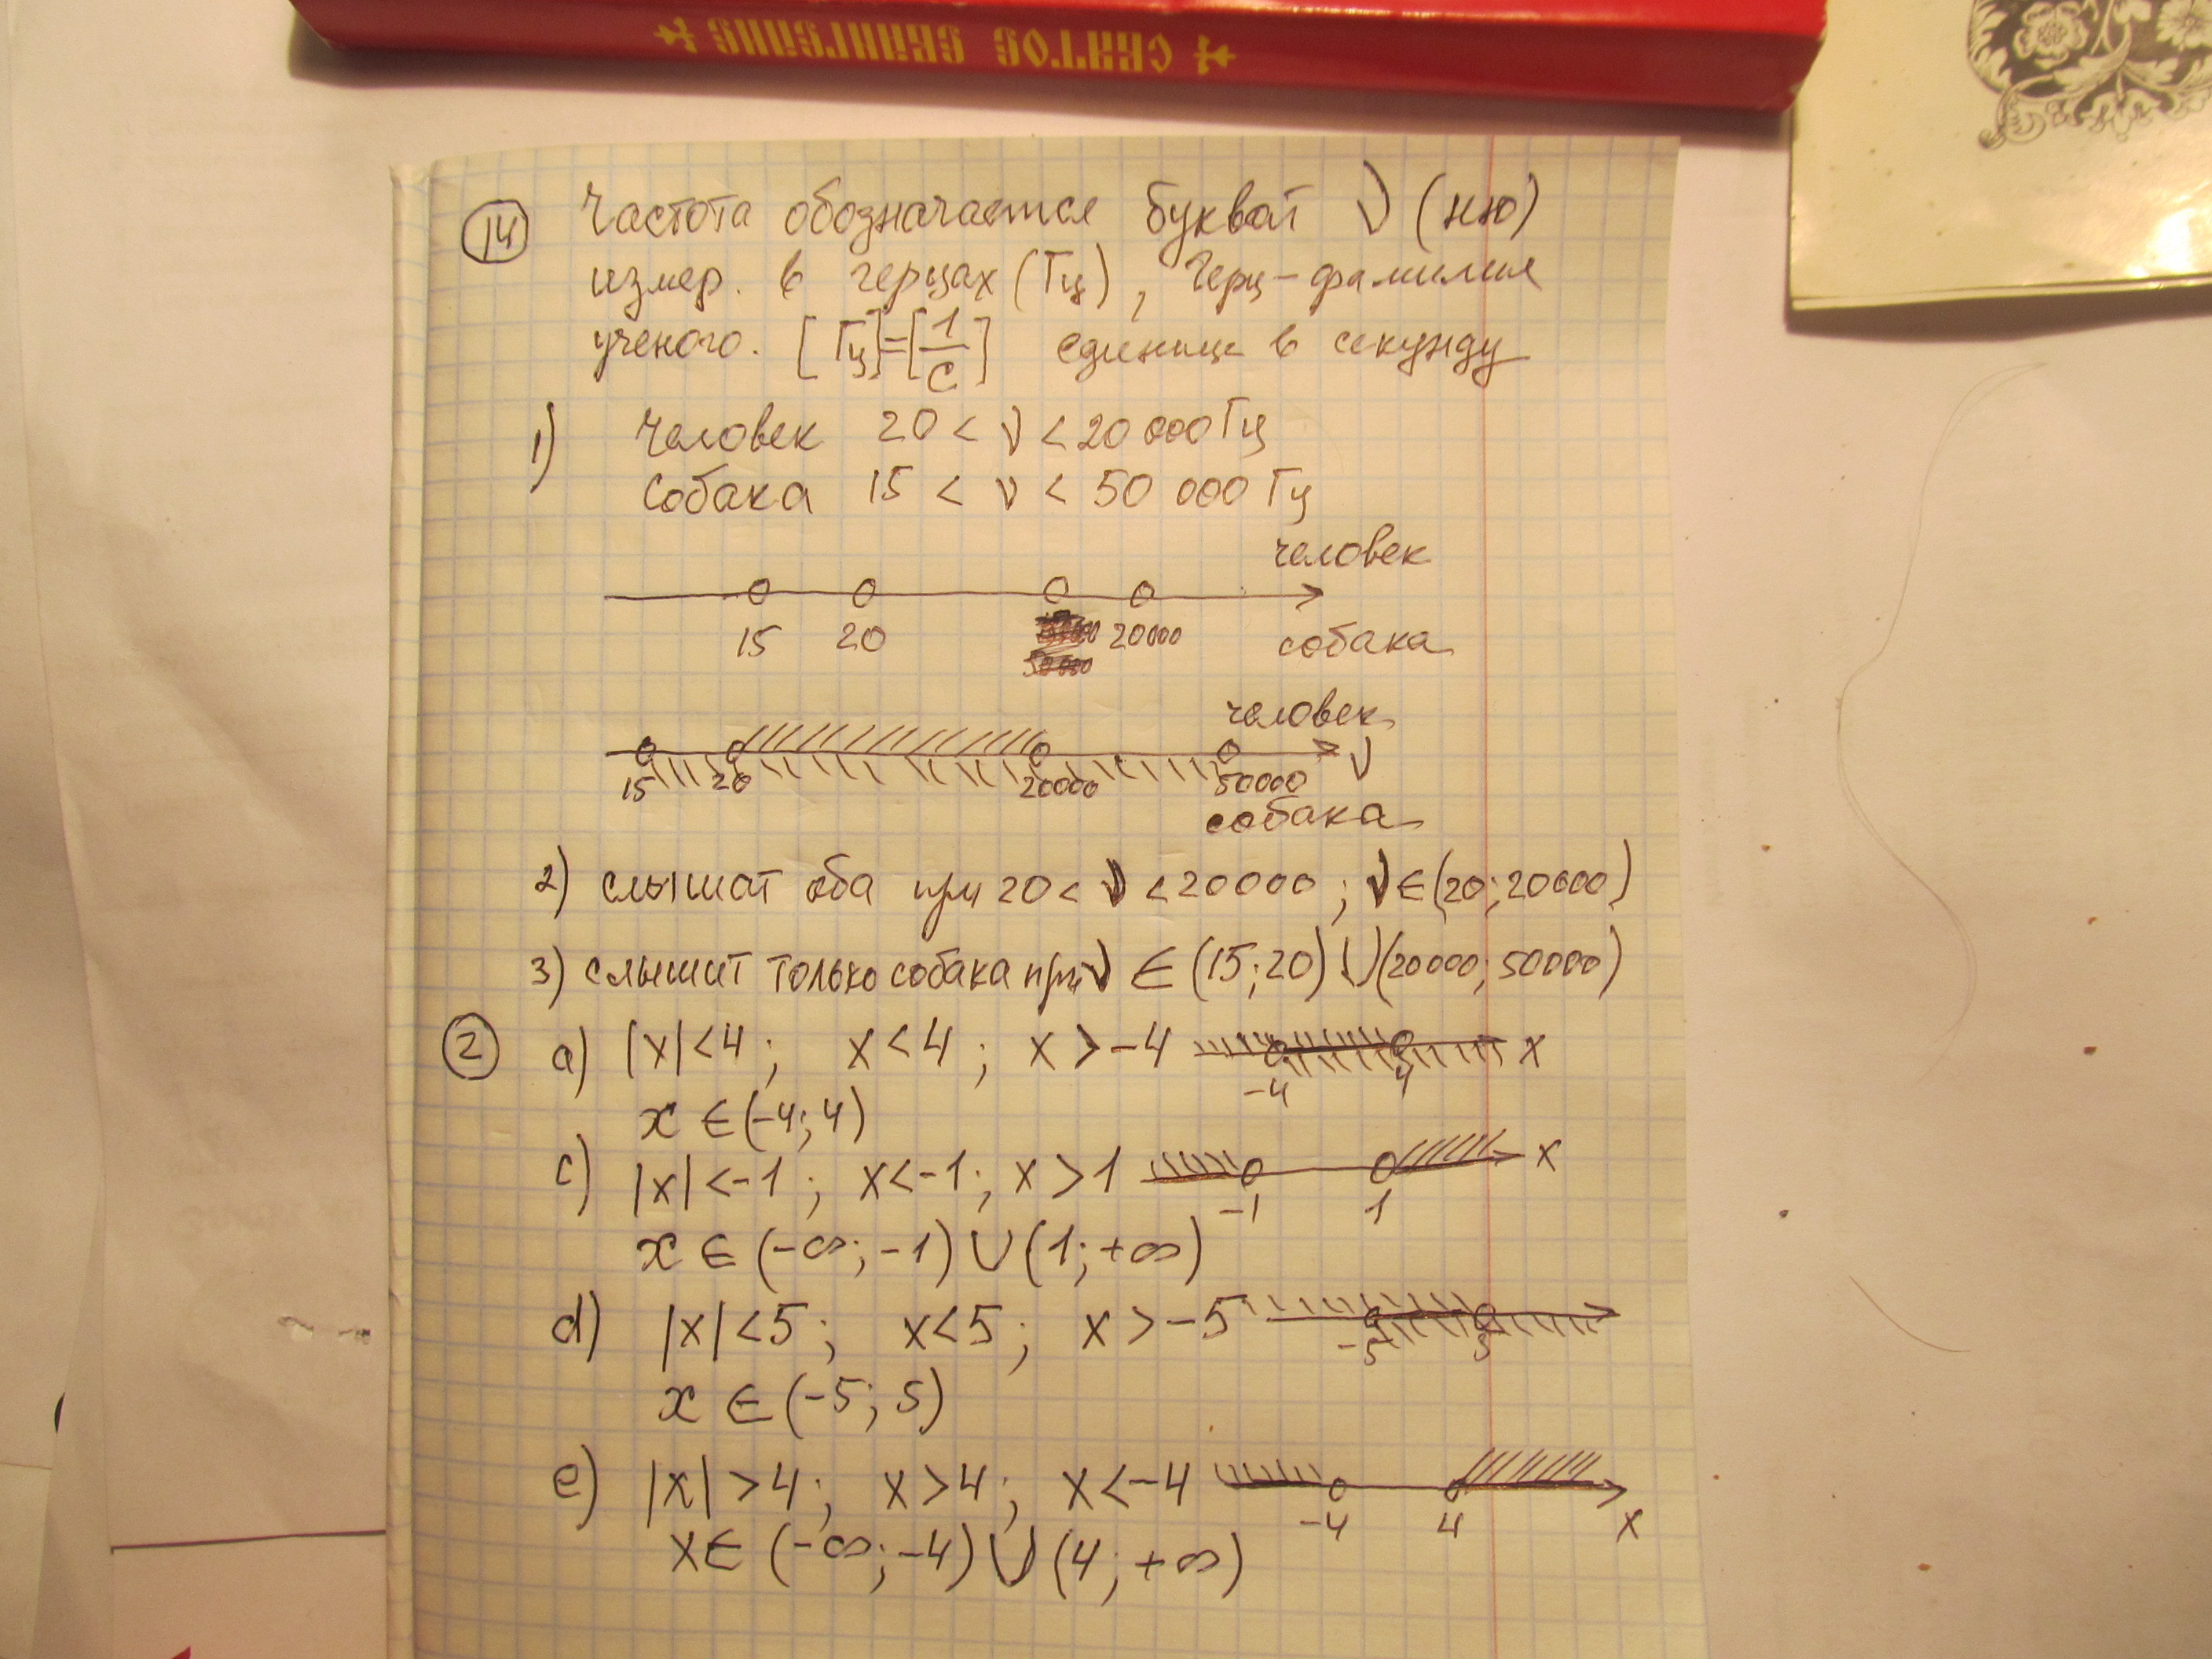 СВЯТОЕ ЕВАНГЕЛИЕ
14 Частота обозначается буквой ν (ню)
измер. в герцах (Гц), Герц - фамилия
ученого. [Гц]=[1/с] единиц в секунду
1) Человек 20 < ν < 20 000 Гц
Собака 15 < ν < 50 000 Гц
человек
15 20 20000 собака
человек
15 20 20000 50000 ν
собака
2) слышат оба при 20 < ν < 20000; ν ∈ (20; 20000)
3) слышит только собака при ν ∈ (15; 20) ∪ (20000; 50000)
2 a) |x| < 4; x < 4; x > -4 x
-4 4
x ∈ (-4; 4)
c) |x| < -1; x < -1; x > 1 x
-1 1
x ∈ (-∞; -1) ∪ (1; +∞)
d) |x| < 5; x < 5; x > -5
-5 5
x ∈ (-5; 5)
e) |x| > 4; x > 4; x < -4
-4 4 x
x ∈ (-∞; -4) ∪ (4; +∞)